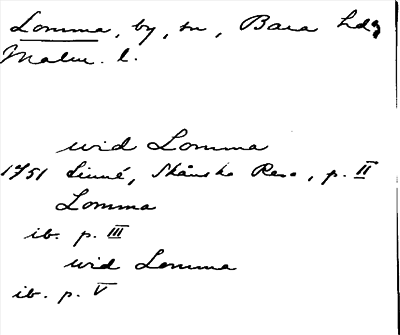 Lomma, by, sn, Bara hd
Malm. l.
wid Lomma
1751 Linné, Skånska Resa, p. II
Lomma
ib. p. III
wid Lomma
ib. p. V